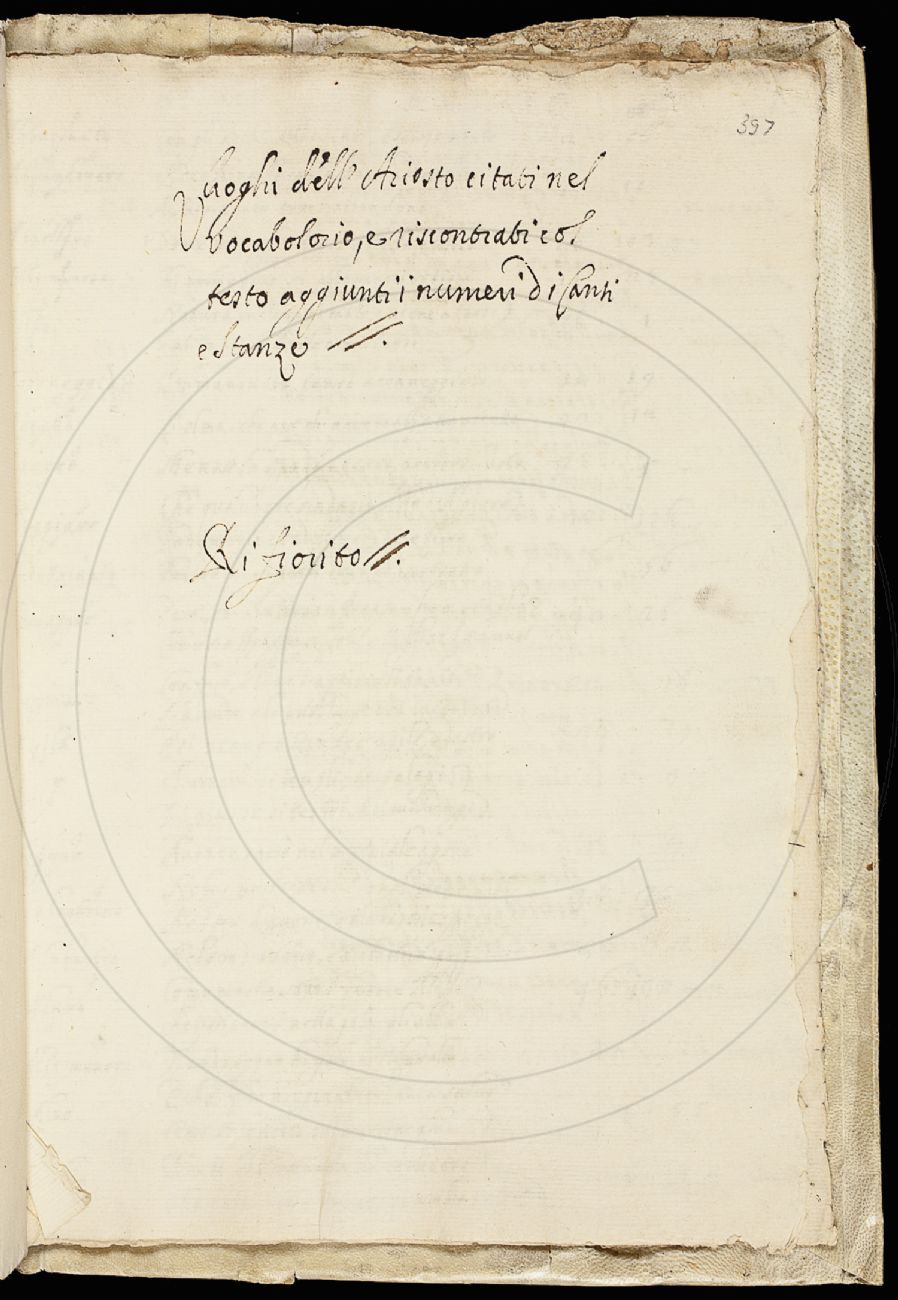 397
Luoghi dell'Ariosto citati nel
Vocabolorio, e riscontrati col
testo aggiunti i numeri di Canti
e Stanze //.
Rifiorito //.